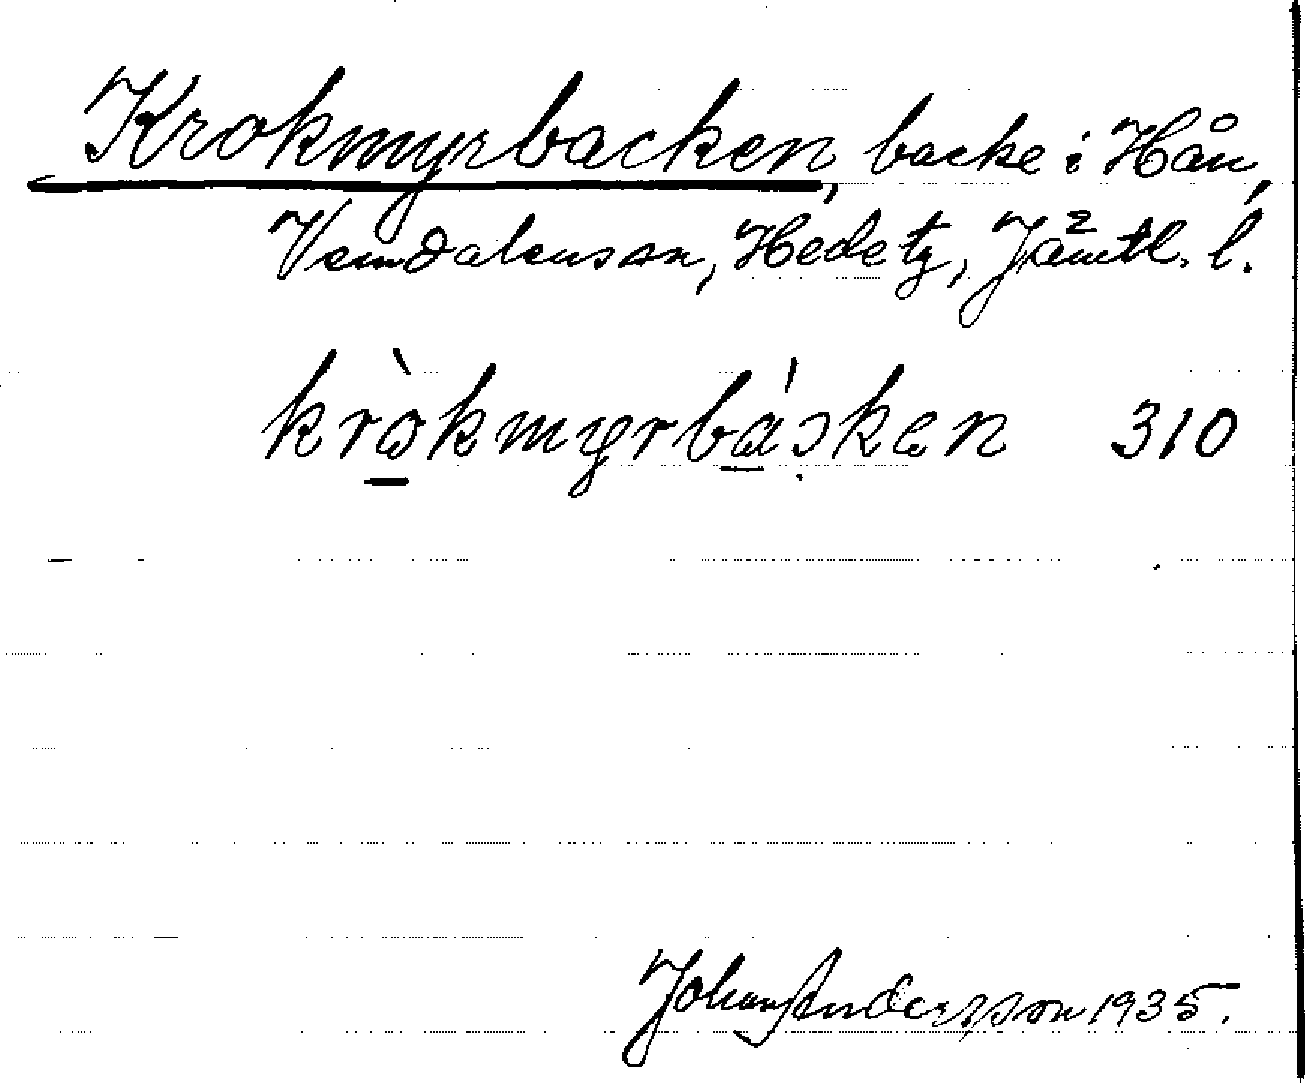 Krokmyrbacken, backe i Hån,
Vemdalens sn, Hede tg, Jämtl. l.
krò̱kmyrbá̱ɔken 310
Johan Andersson 1935.